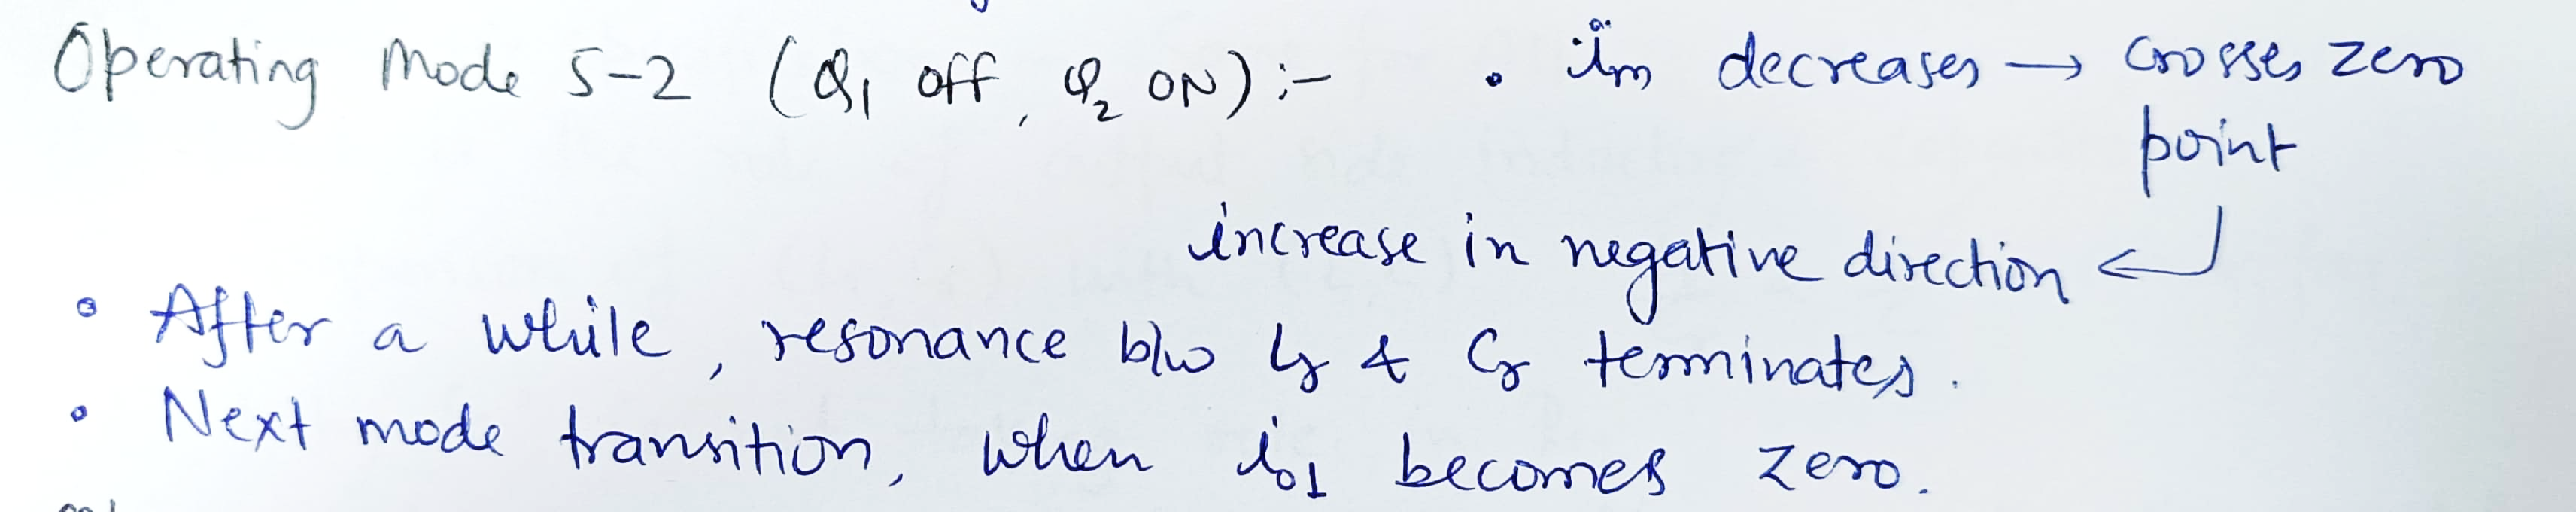 Operating Mode 5-2 (Q1 off, Q2 ON) :- • im decreases → crosses zero
point
increase in negative direction ←
• After a while, resonance b/w Lr & Cr terminates.
• Next mode transition, when is1 becomes zero.